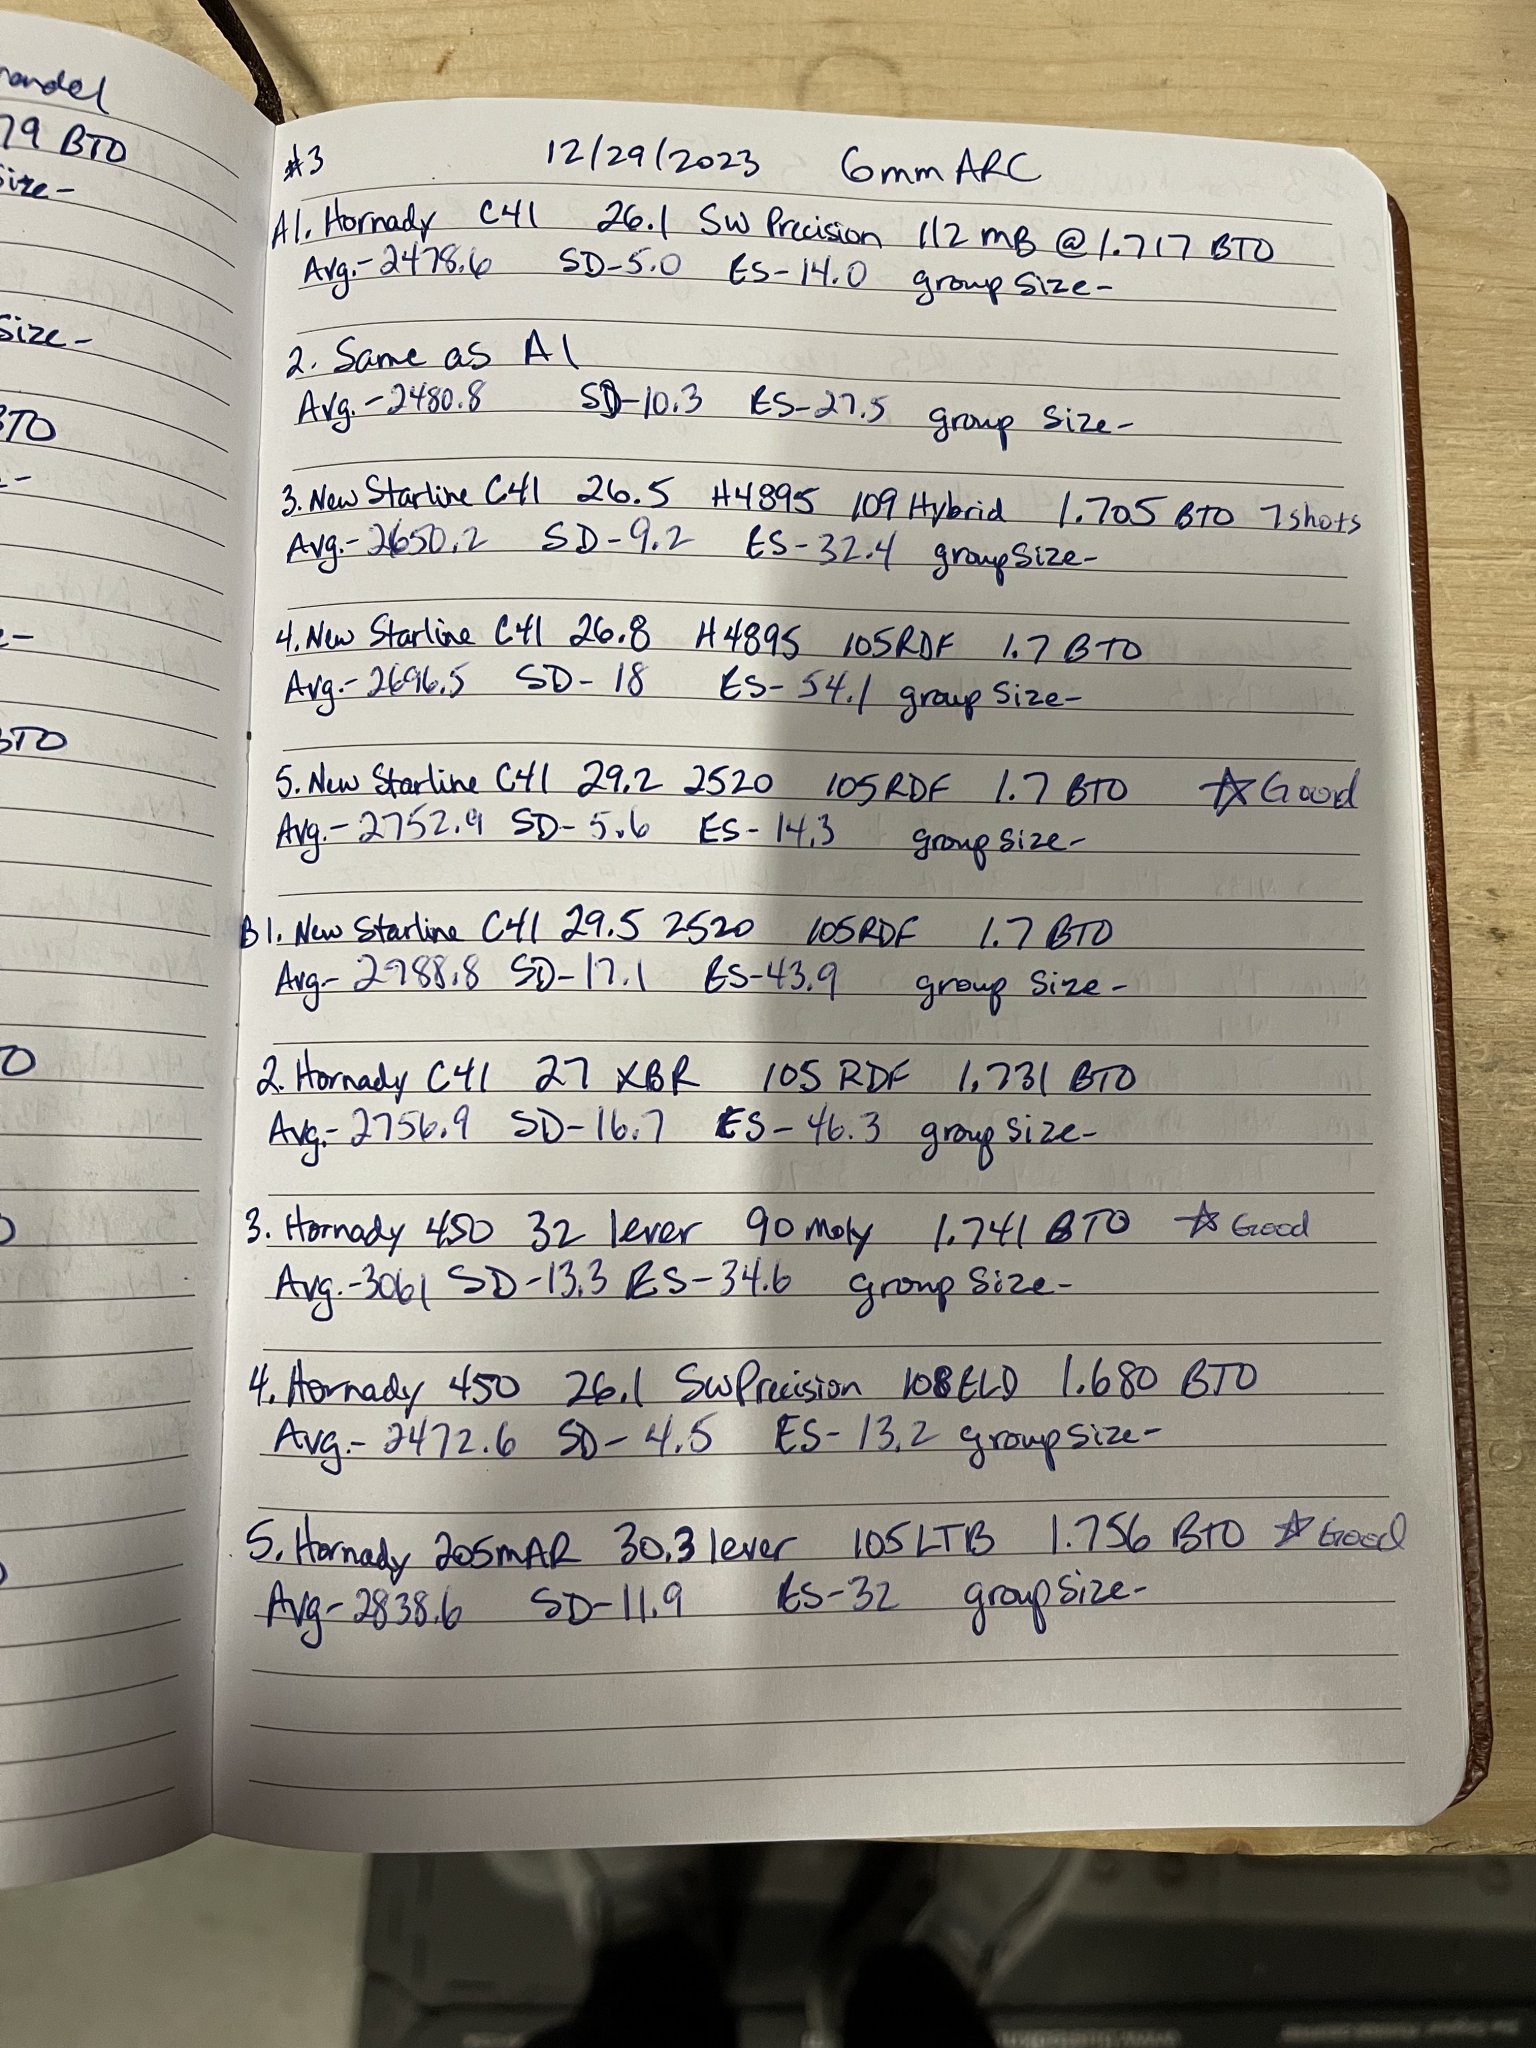 nandel
79 BTO
size-
size-
BTO
BTO
#3 12/29/2023 6mm ARC
A1. Hornady C41 26.1 SW Precision 112 MB @ 1.717 BTO
Avg.- 2478.6 SD-5.0 ES-14.0 group size-
2. Same as A1
Avg.- 2480.8 SD-10.3 ES-27.5 group size-
3. New Starline C41 26.5 H4895 109 Hybrid 1.705 BTO 7 shots
Avg.- 2650.2 SD-9.2 ES-32.4 group size-
4. New Starline C41 26.8 H4895 105 RDF 1.7 BTO
Avg.- 2696.5 SD-18 ES-54.1 group size-
5. New Starline C41 29.2 2520 105 RDF 1.7 BTO ☆ Good
Avg.- 2752.9 SD-5.6 ES-14.3 group size-
B1. New Starline C41 29.5 2520 105 RDF 1.7 BTO
Avg- 2788.8 SD-17.1 ES-43.9 group size-
2. Hornady C41 27 XBR 105 RDF 1.731 BTO
Avg.- 2756.9 SD-16.7 ES-46.3 group size-
3. Hornady 450 32 lever 90 moly 1.741 BTO ☆ Good
Avg.-3061 SD-13.3 ES-34.6 group size-
4. Hornady 450 26.1 SW Precision 108 ELD 1.680 BTO
Avg.- 2472.6 SD-4.5 ES-13.2 group size-
5. Hornady 205MAR 30.3 lever 105 LTB 1.756 BTO ☆ Good
Avg- 2838.6 SD-11.9 ES-32 group size-